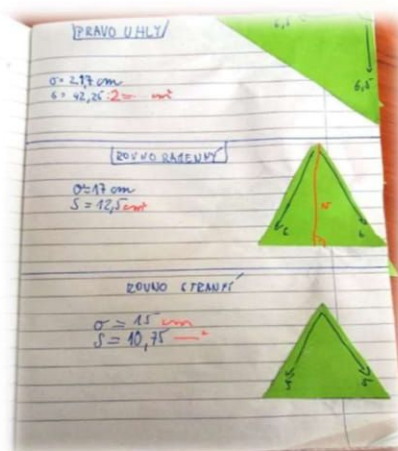 PRAVO UHLÝ
6,5
6,5
o = 21,7 cm
S = 42,25 :2 = cm²
ROVNO RAMENNÝ
o = 17 cm
S = 12,5 cm²
6
6
5
ROVNO STRANÝ
o = 15 cm
S = 10,75
5
5